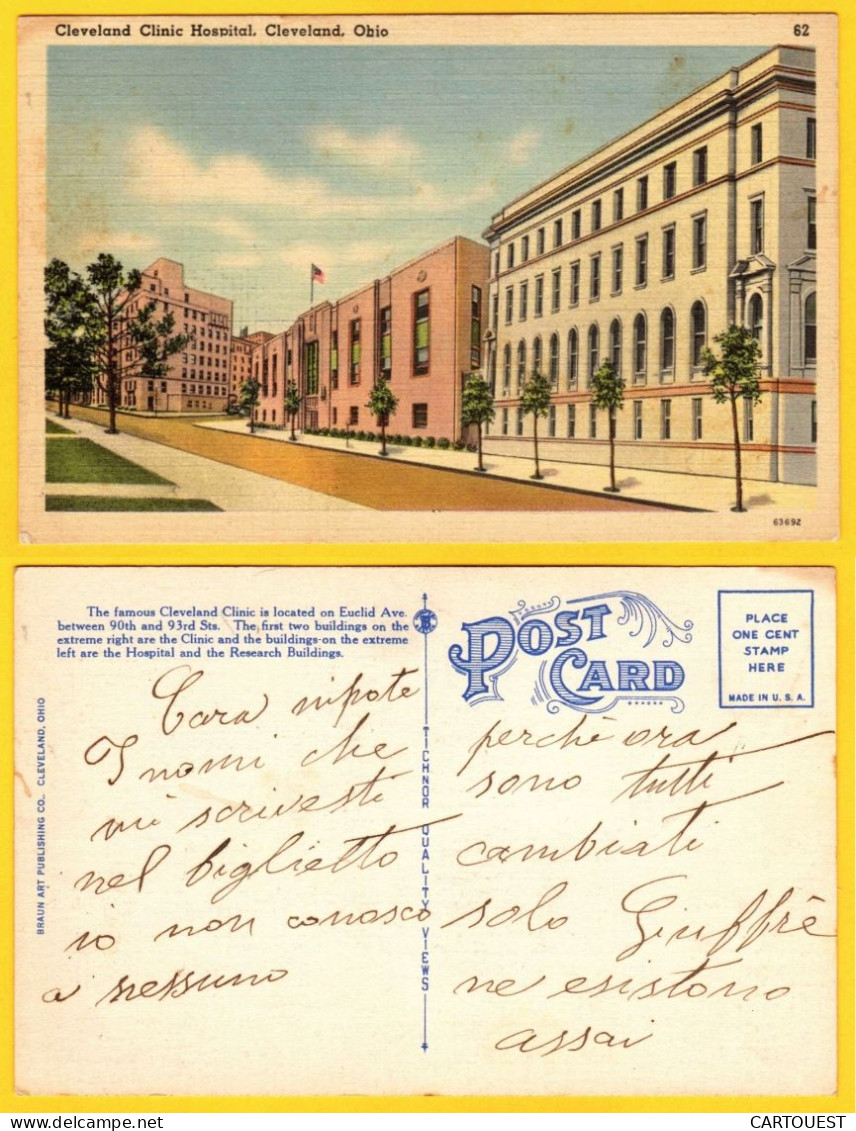 Cleveland Clinic Hospital, Cleveland, Ohio
62
63692
The famous Cleveland Clinic is located on Euclid Ave.
between 90th and 93rd Sts. The first two buildings on the
extreme right are the Clinic and the buildings on the extreme
left are the Hospital and the Research Buildings.
POST
CARD
PLACE
ONE CENT
STAMP
HERE
MADE IN U. S. A.
BRAUN ART PUBLISHING CO., CLEVELAND, OHIO
TICHNOR QUALITY VIEWS
Cara nipote
I nomi che
mi scrivesti
nel biglietto
io non conosco
a nessuno
perchè ora
sono tutti
cambiati
solo Giuffrè
ne esistono
assai
CARTOUEST